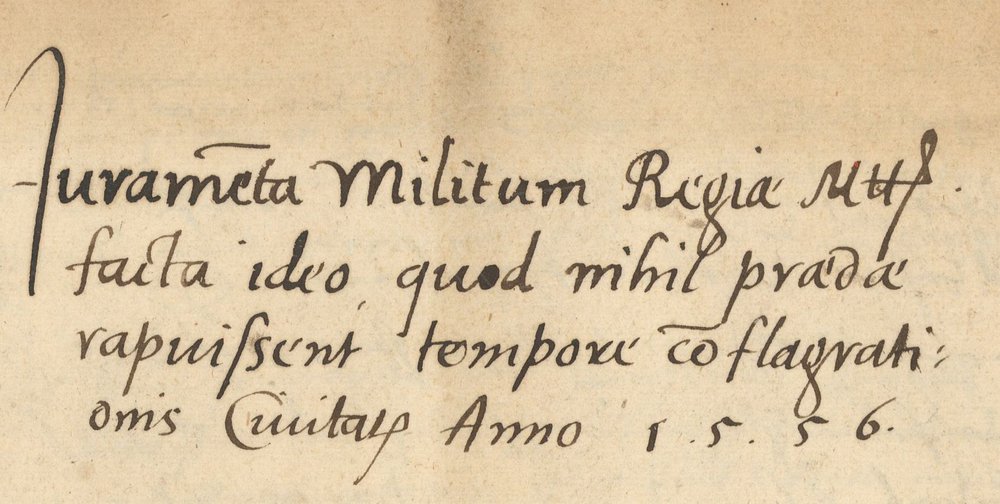 Juramēta Militum Regiæ Mttꝭ.
facta ideo, quod nihil prædæ
rapuissent tempore cōflagrati-
onis Civitatꝭ Anno 1.5.56.